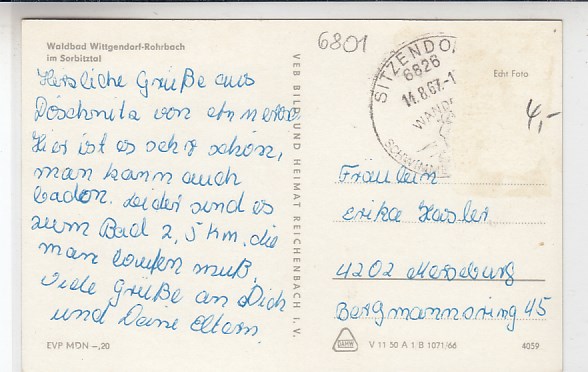 Waldbad Wittgendorf-Rohrbach
im Sorbitztal
Herzliche Grüße aus
Döschnitz von
Hier ist es sehr schön,
man kann auch
baden. Leider sind es
zum Bad 2,5 km, die
man laufen muß.
Viele Grüße an Dich
und Deine Eltern
EVP MDN -,20
VEB BILD UND HEIMAT REICHENBACH I. V.
6801
SITZENDO
6826
14.8.67.-1
WAND
SCHWIMM
Echt Foto
4,-
Fräulein
Erika Hasler
4202 Merseburg
Bergmannsring 45
V 11 50 A 1/B 1071/66
4059